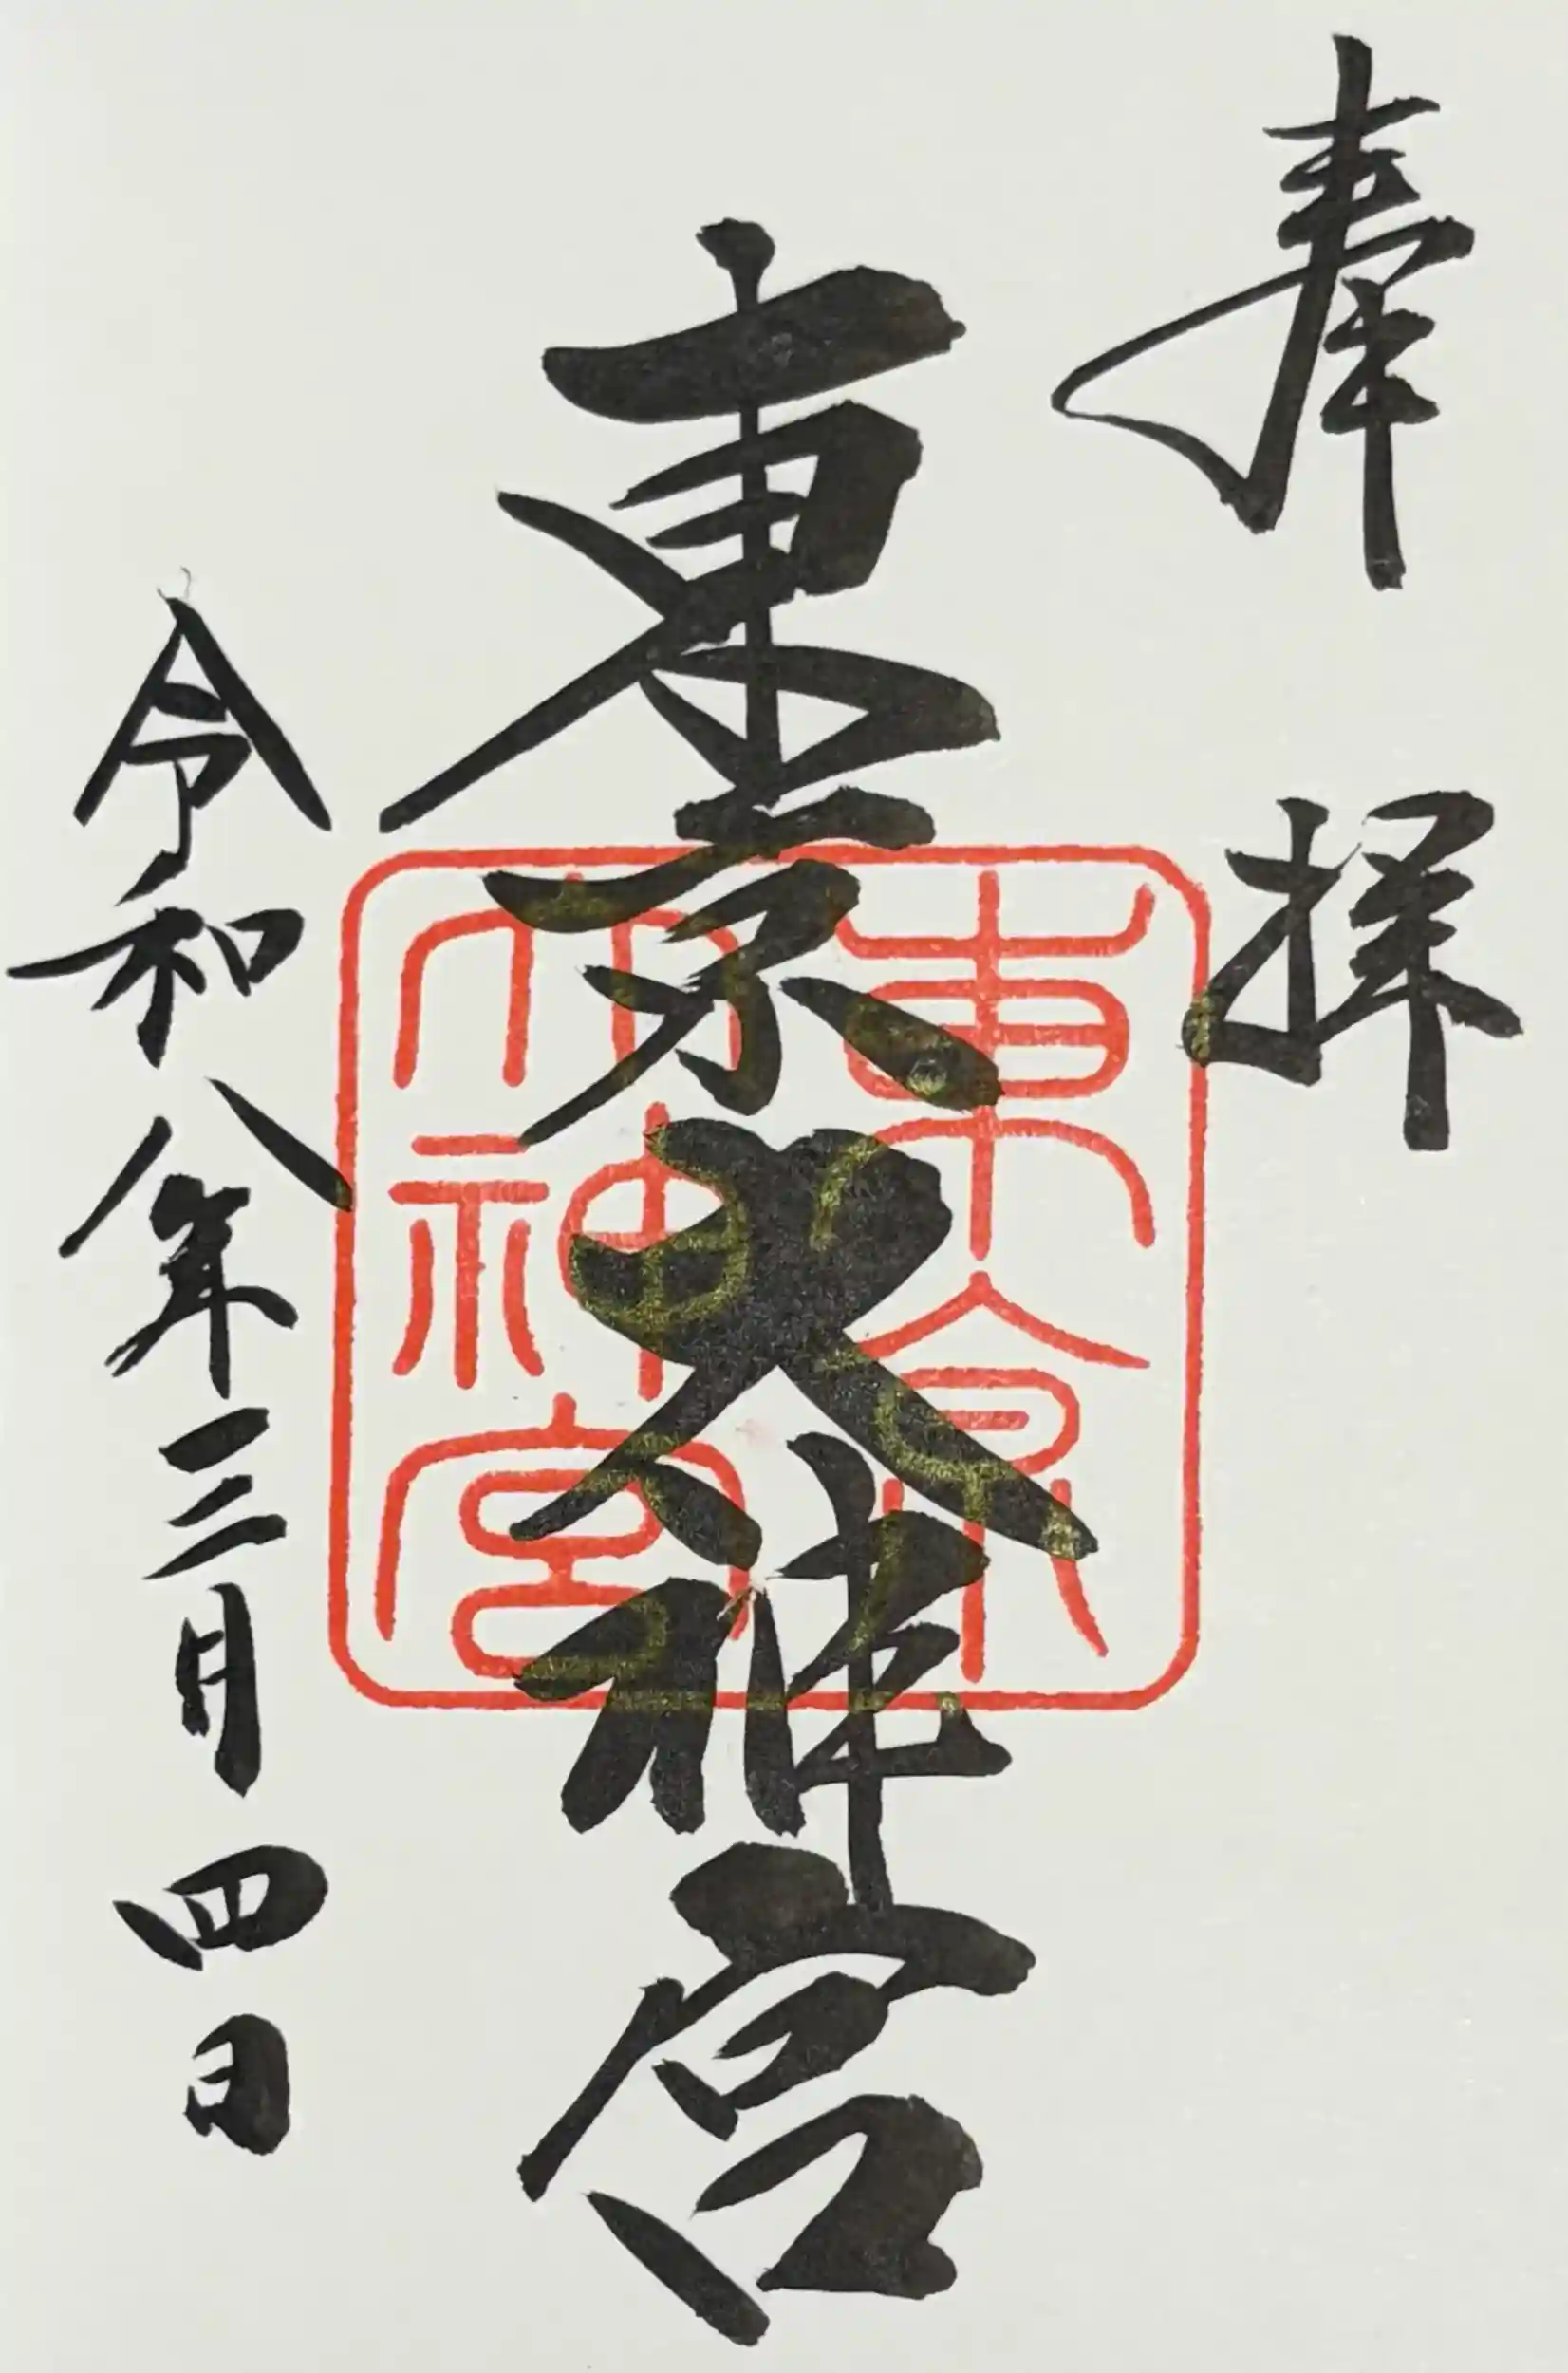 奉拝
東京大神宮
東京大神宮
令和八年三月四日